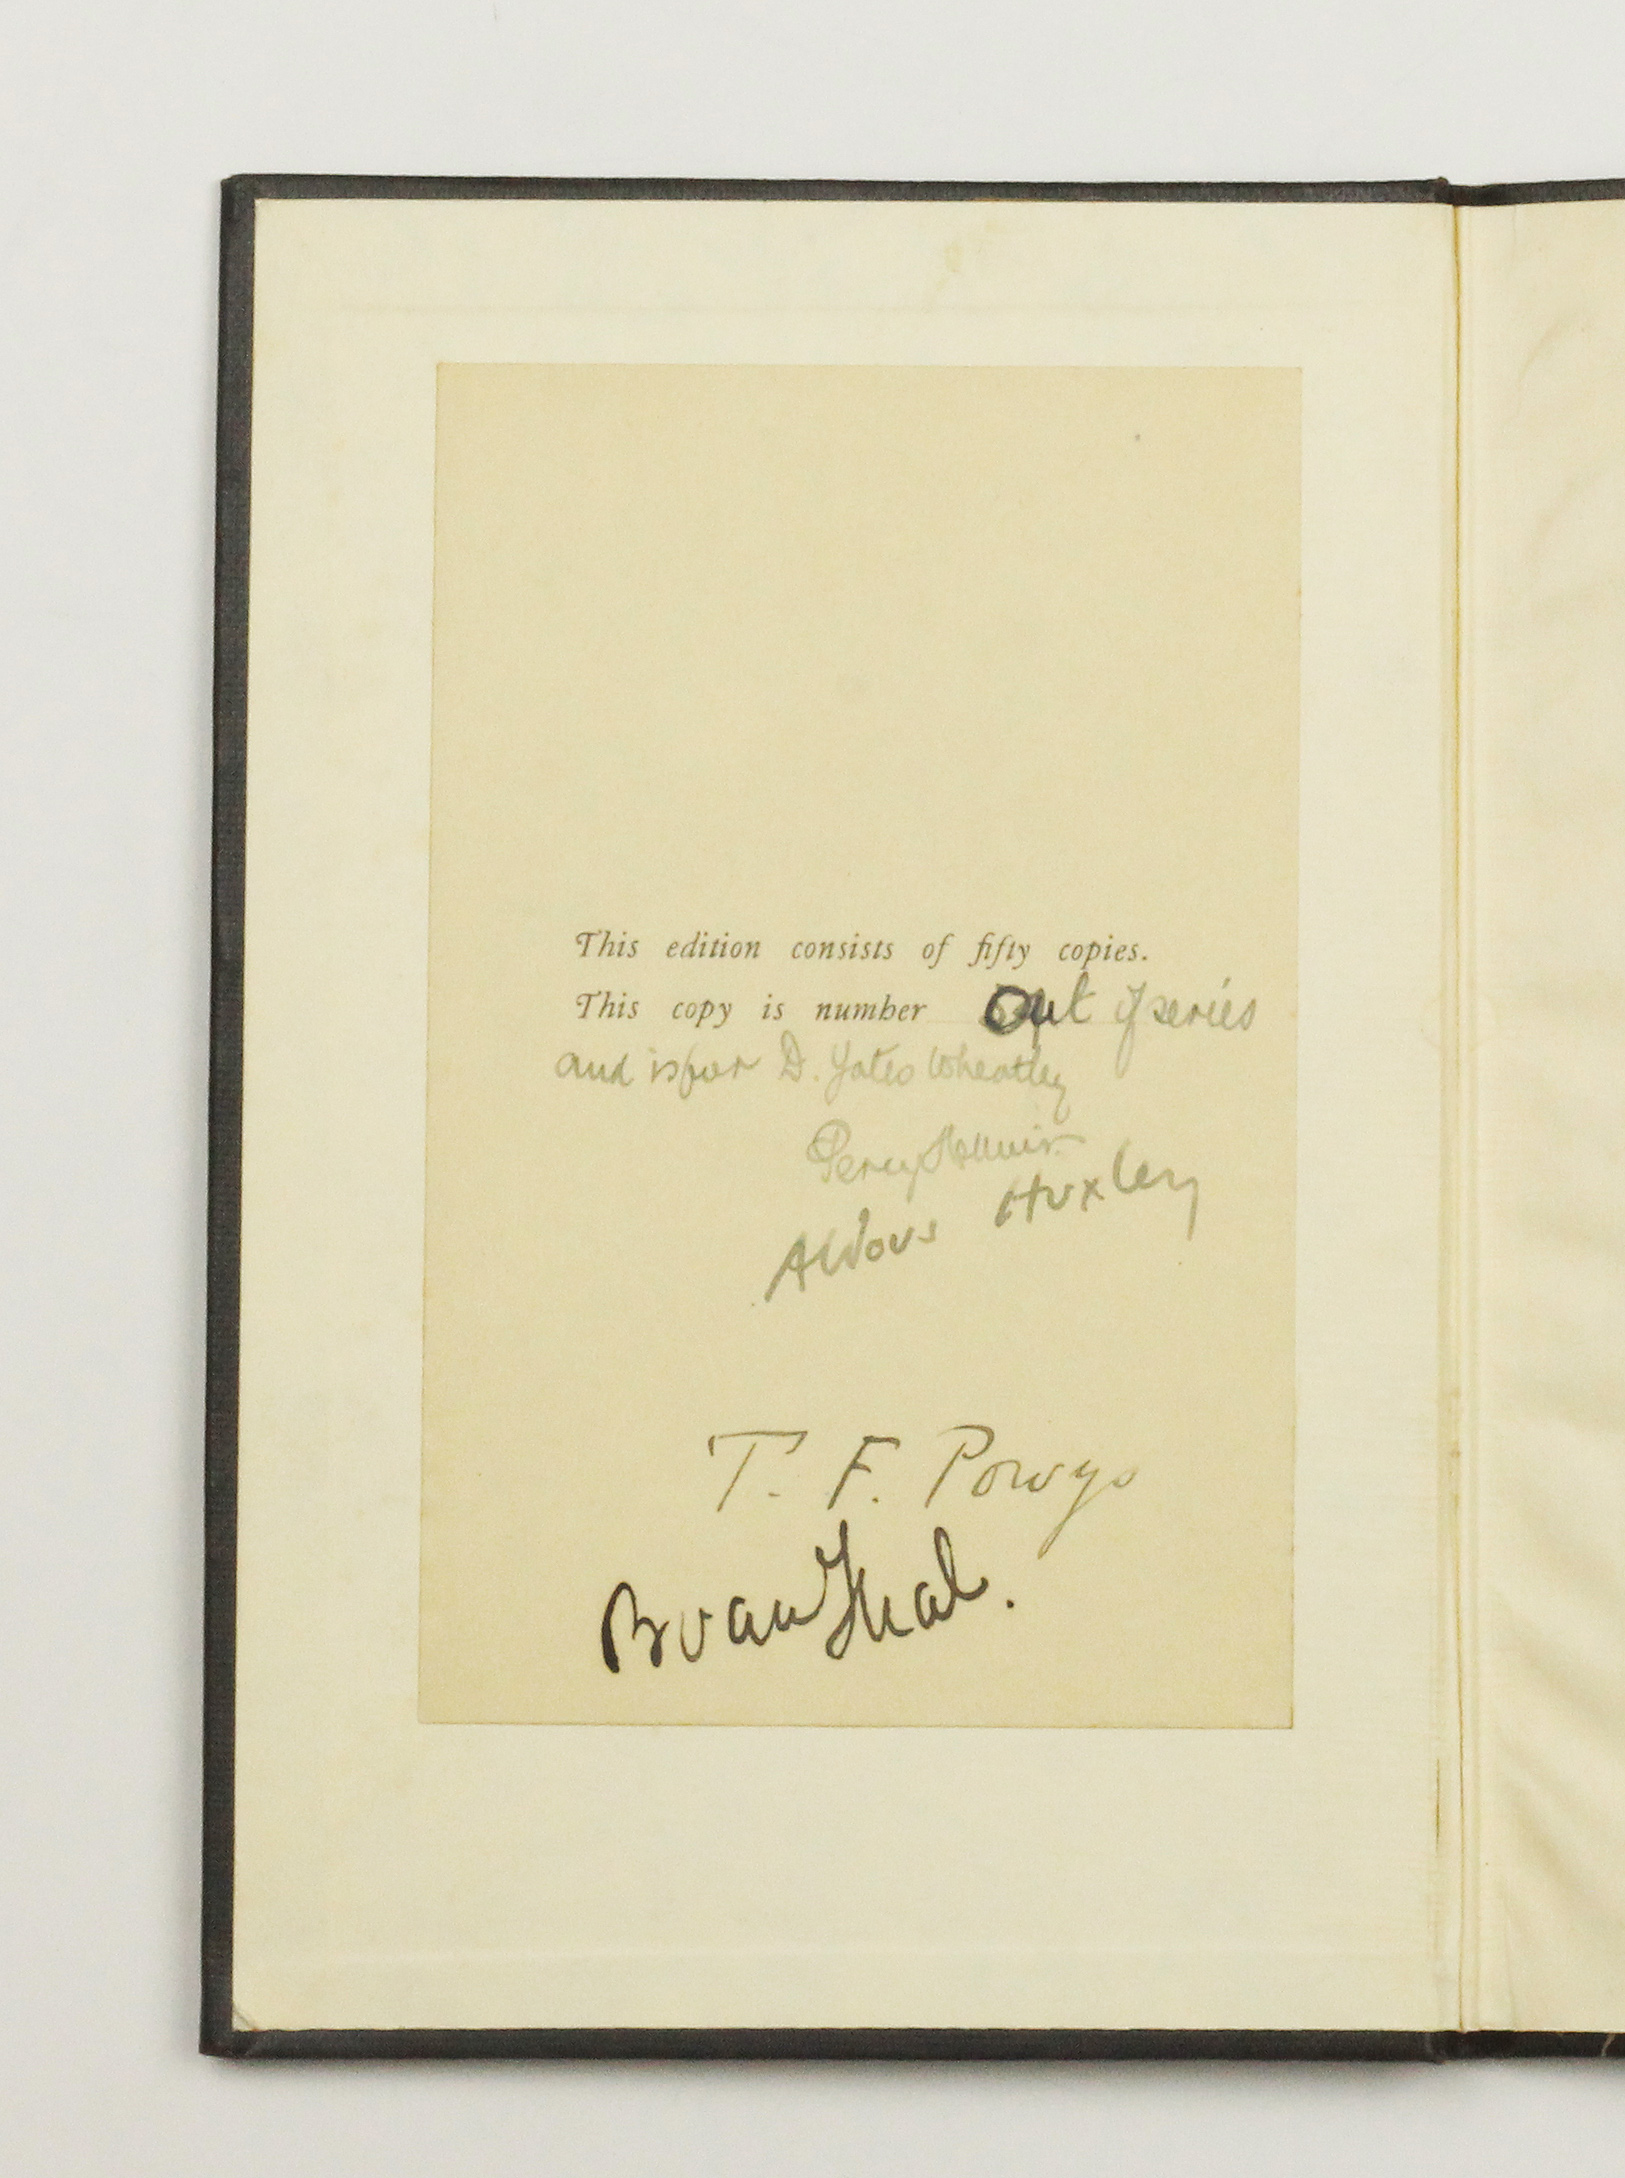 This edition consists of fifty copies.
This copy is number Out of series
and is for D. Yates Wheatley
Percy H. Muir.
Aldous Huxley
T. F. Powys